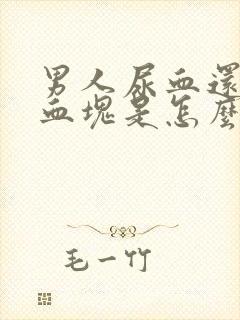 男人尿血還
血塊是怎麼
毛一竹